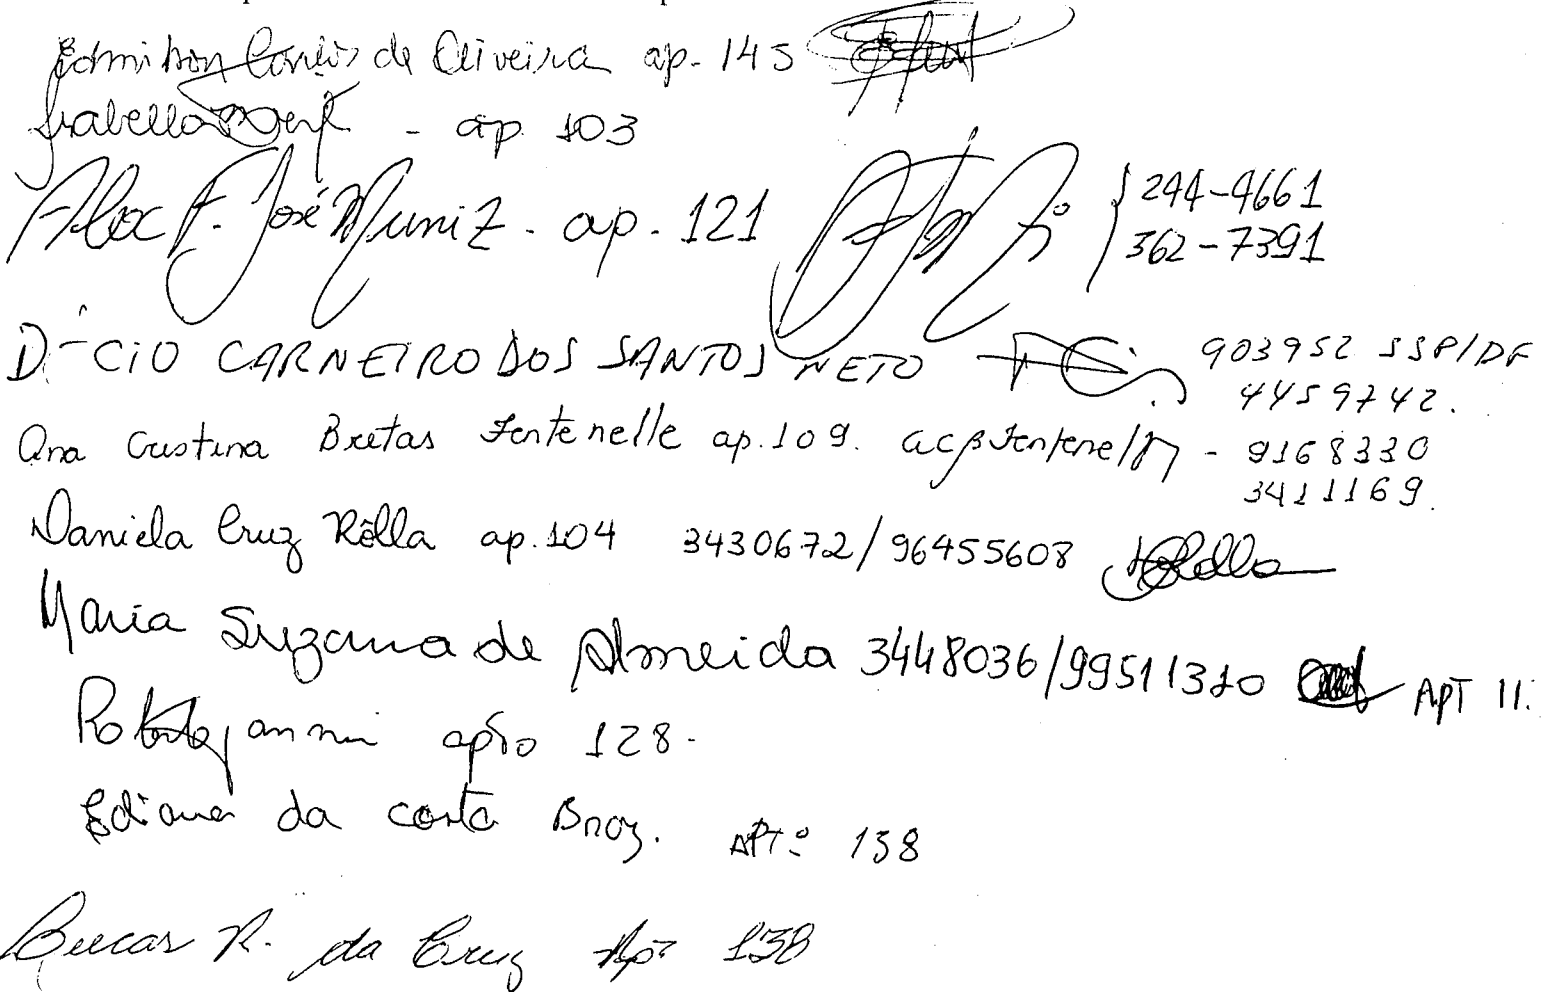 Edmilson Carlos de Oliveira ap. 145
Isabella - ap 103
Alex F. José Muniz - ap. 121 244-4661
362-7391
DÉCIO CARNEIRO DOS SANTOS NETO 903952 SSP/DF
4459742.
Ana Cristina Bretas Fontenelle ap. 109. acbfontenelle - 9168330
3411169.
Daniela Cruz Rôlla ap. 104 3430672/96455608 Rolla
Maria Suzana de Almeida 3448036/99511310 APT 11
Roberto Jannini apto 128.
Ediana da Costa Broz. APTº 138
R. da Cruz Apº 138